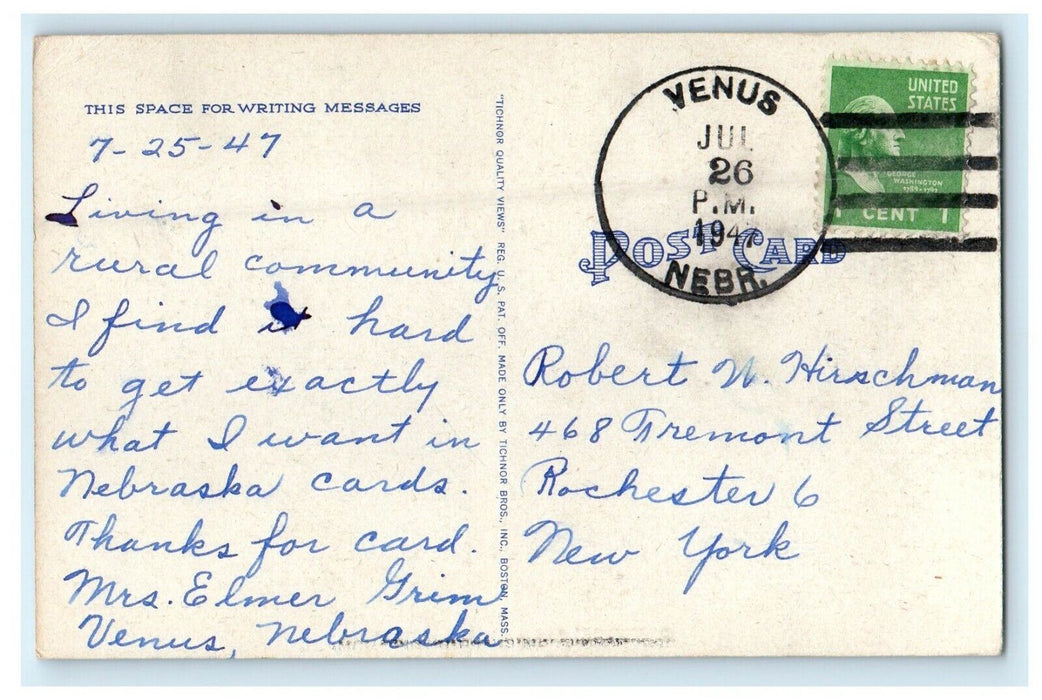 THIS SPACE FOR WRITING MESSAGES
7-25-47
Living in a
rural community
I find it hard
to get exactly
what I want in
Nebraska cards.
Thanks for card.
Mrs. Elmer Grim
Venus, Nebraska
"TICHNOR QUALITY VIEWS" REG. U. S. PAT. OFF. MADE ONLY BY TICHNOR BROS., INC., BOSTON, MASS.
VENUS
JUL
26
P.M.
1947
NEBR.
UNITED
STATES
GEORGE
WASHINGTON
1 CENT 1
POST CARD
Robert W. Hirschman
468 Fremont Street
Rochester 6
New York